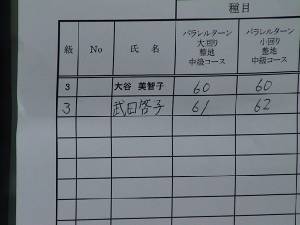 種目
級 No 氏 名 パラレルターン 大回り 整地 中級コース パラレルターン 小回り 整地 中級コース
3 大谷 美智子 60 60
3 武田啓子 61 62